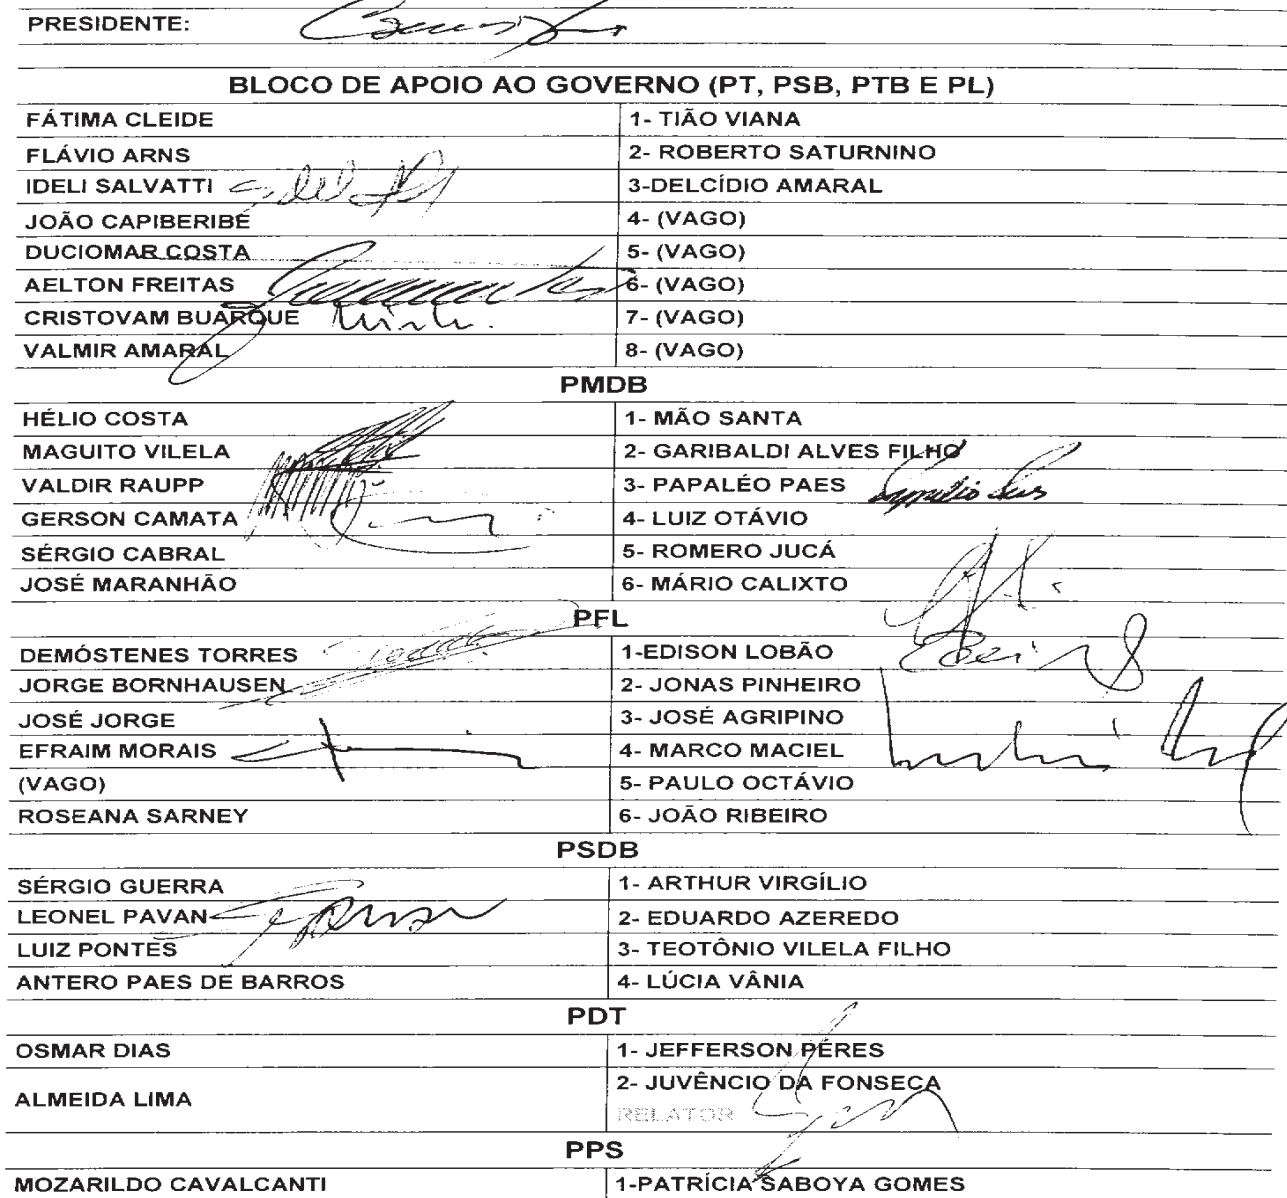 PRESIDENTE:
BLOCO DE APOIO AO GOVERNO (PT, PSB, PTB E PL)
FÁTIMA CLEIDE 1- TIÃO VIANA
FLÁVIO ARNS 2- ROBERTO SATURNINO
IDELI SALVATTI 3-DELCÍDIO AMARAL
JOÃO CAPIBERIBE 4- (VAGO)
DUCIOMAR COSTA 5- (VAGO)
AELTON FREITAS 6- (VAGO)
CRISTOVAM BUARQUE 7- (VAGO)
VALMIR AMARAL 8- (VAGO)
PMDB
HÉLIO COSTA 1- MÃO SANTA
MAGUITO VILELA 2- GARIBALDI ALVES FILHO
VALDIR RAUPP 3- PAPALÉO PAES
GERSON CAMATA 4- LUIZ OTÁVIO
SÉRGIO CABRAL 5- ROMERO JUCÁ
JOSÉ MARANHÃO 6- MÁRIO CALIXTO
PFL
DEMÓSTENES TORRES 1-EDISON LOBÃO
JORGE BORNHAUSEN 2- JONAS PINHEIRO
JOSÉ JORGE 3- JOSÉ AGRIPINO
EFRAIM MORAIS 4- MARCO MACIEL
(VAGO) 5- PAULO OCTÁVIO
ROSEANA SARNEY 6- JOÃO RIBEIRO
PSDB
SÉRGIO GUERRA 1- ARTHUR VIRGÍLIO
LEONEL PAVAN 2- EDUARDO AZEREDO
LUIZ PONTES 3- TEOTÔNIO VILELA FILHO
ANTERO PAES DE BARROS 4- LÚCIA VÂNIA
PDT
OSMAR DIAS 1- JEFFERSON PÉRES
ALMEIDA LIMA 2- JUVÊNCIO DA FONSECA
RELATOR
PPS
MOZARILDO CAVALCANTI 1-PATRÍCIA SABOYA GOMES